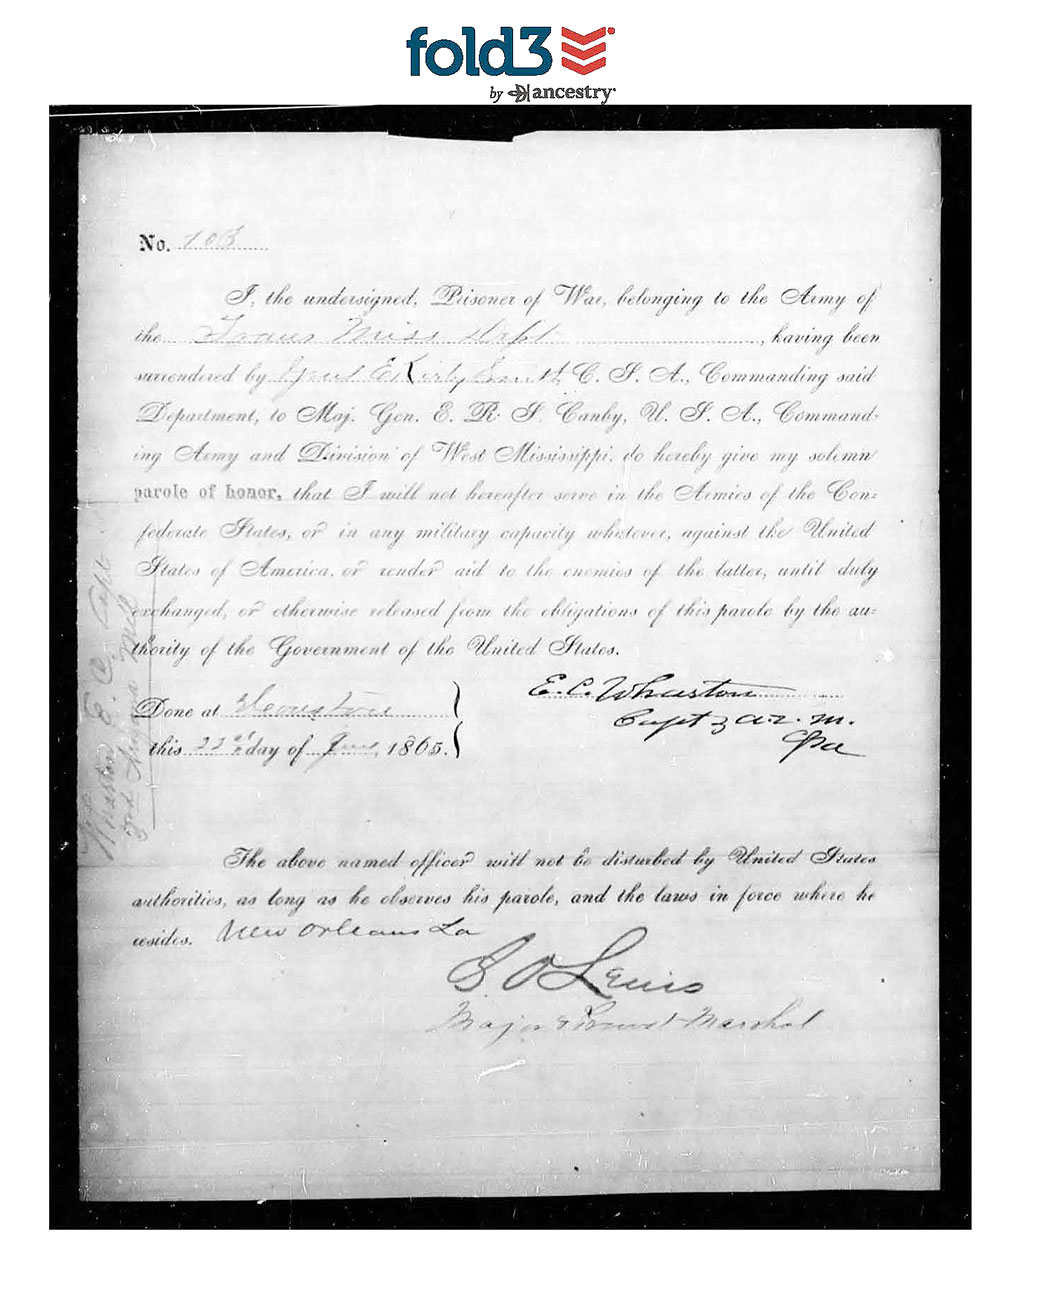 fold3
by ancestry
No. 103
I, the undersigned, Prisoner of War, belonging to the Army of
the Trans Miss Dept, having been
surrendered by Genl E Kirby Smith C. S. A., Commanding said
Department, to Maj. Gen. E. R. S. Canby, U. S. A., Command-
ing Army and Division of West Mississippi, do hereby give my solemn
parole of honor, that I will not hereafter serve in the Armies of the Con-
federate States, or in any military capacity whatever, against the United
States of America, or render aid to the enemies of the latter, until duly
exchanged, or otherwise released from the obligations of this parole by the au-
thority of the Government of the United States.
E. C. Wharton
Done at Houston
Capt & a. q. m.
this 22d day of June 1865.
The above named officer will not be disturbed by United States
authorities, as long as he observes his parole, and the laws in force where he
resides. New Orleans La
G O Lewis
Major & Provost Marshal
Wharton E. C. Capt